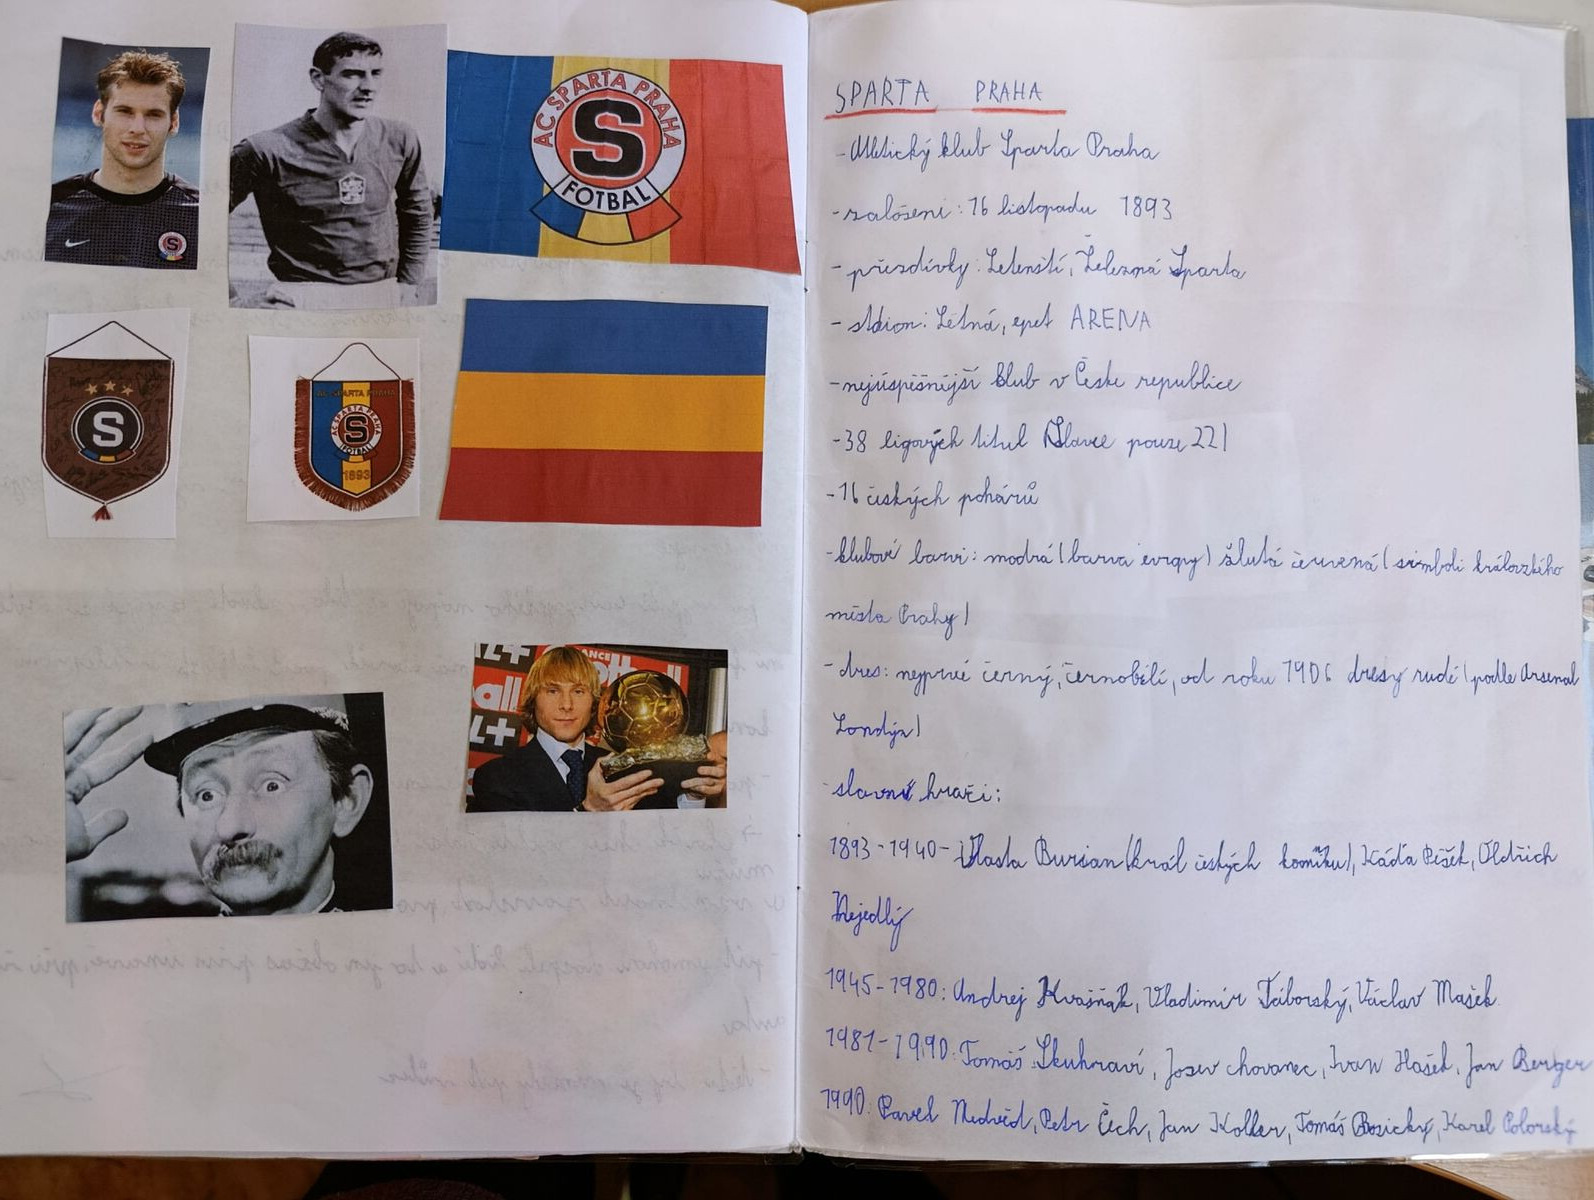 AC SPARTA PRAHA
S
FOTBAL
S
S
AC SPARTA PRAHA
S
FOTBAL
1893
SPARTA PRAHA
- Atletický klub Sparta Praha
- založeni: 16 listopadu 1893
- přezdívky: Letenští, Železná Sparta
- stdion: Letná, epet ARENA
- nejúspěšnější klub v Česke republice
- 38 ligových titul (Slavie pouze 22)
- 16 českých pohárů
- klubové barvi: modrá (barva evropy) žlutá červená (simboli královzkého
města Prahy)
- dres: nejprve černý, černobílí, od roku 1906 dresy rudé (podle Arsenal
Londýn)
- slavné hrači:
1893-1940- Vlasta Burian (král českých komiku), Káďa Pešek, Oldřich
Nejedlý
1945-1980: Andrej Kvašňák, Vladimír Táborský, Václav Mašek
1981-1990: Tomáš Skuhraví, Josev chovanec, Ivan Hašek, Jan Berger
1990: Pavel Nedvěd, Petr Čech, Jan Koller, Tomáš Rosický, Karel Poborský